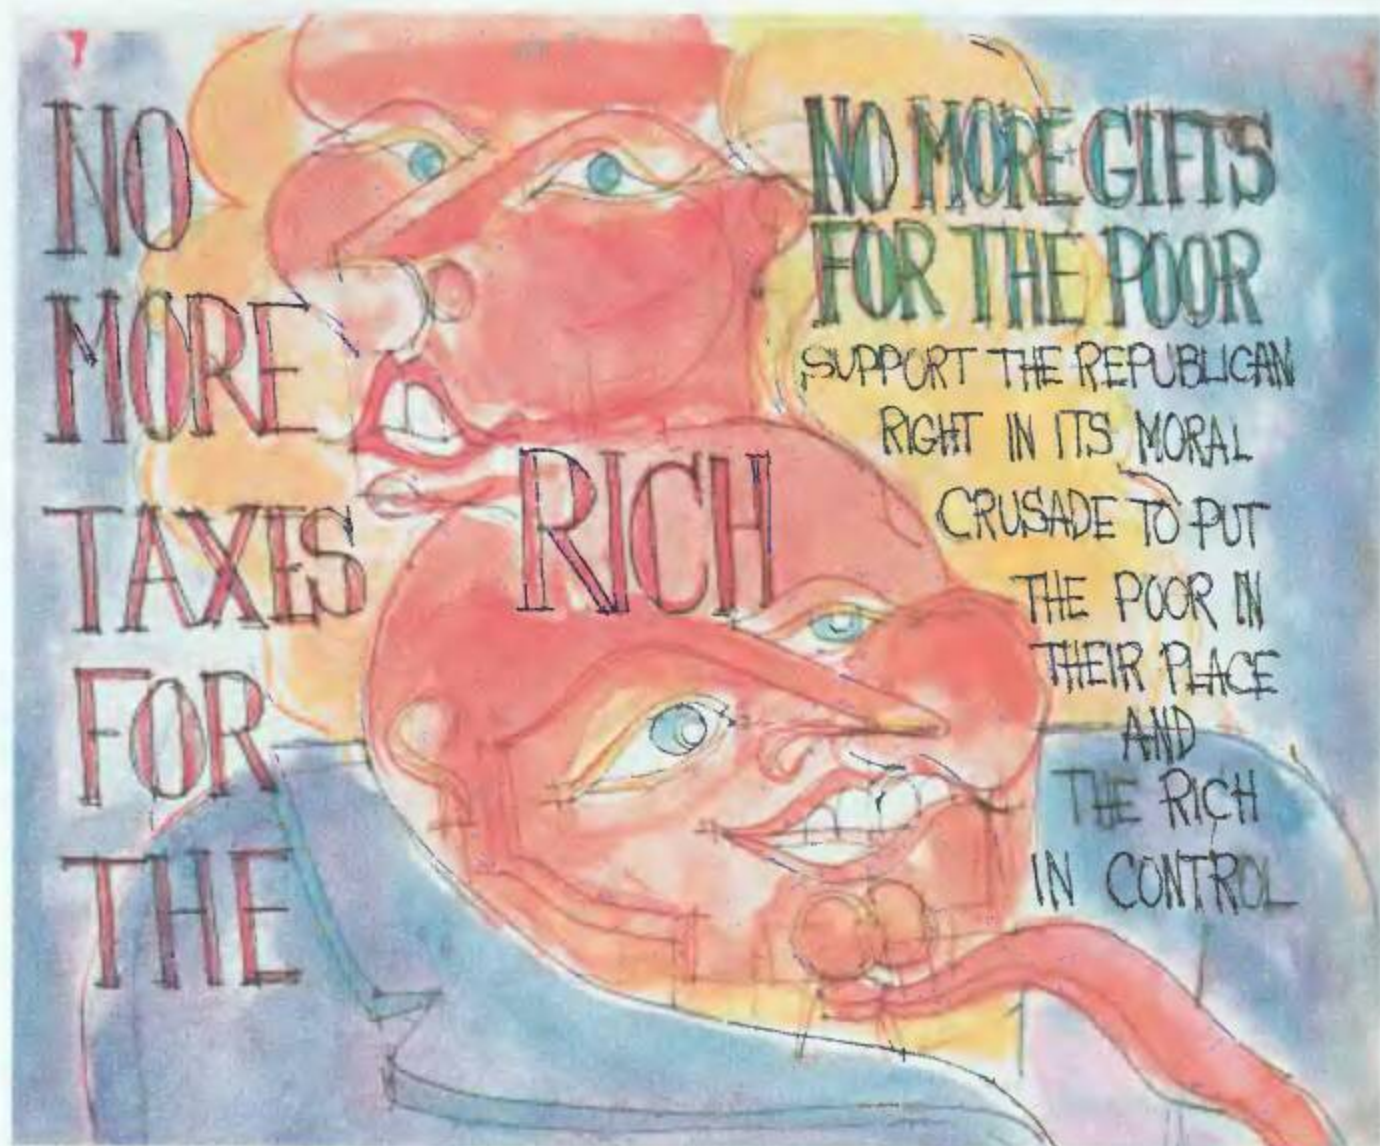 NO
MORE
TAXES
FOR
THE
RICH
NO MORE GIFTS
FOR THE POOR
SUPPORT THE REPUBLICAN
RIGHT IN ITS MORAL
CRUSADE TO PUT
THE POOR IN
THEIR PLACE
AND
THE RICH
IN CONTROL